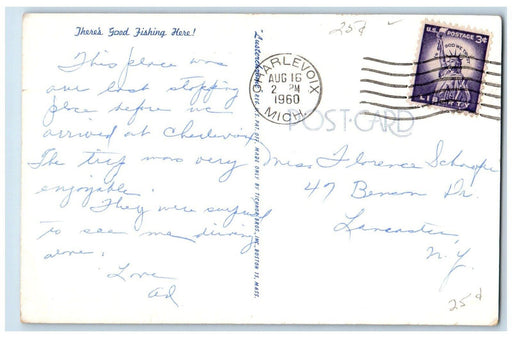 There's Good Fishing Here!
25¢
This place was
our last stopping
place before we
arrived at Charlevoix
The trip was very
enjoyable.
They were surprised
to see me driving
alone.
Love
Ad
"Lusterchrome" REG. U.S. PAT. OFF. MADE ONLY BY TICHNOR BROS., INC., BOSTON 15, MASS.
CHARLEVOIX
AUG 16
2 PM
1960
MICH.
U.S. POSTAGE 3¢
IN GOD WE TRUST
LIBERTY
POST CARD
Miss Florence
47 Benson Dr.
Lancaster
N.Y.
25¢